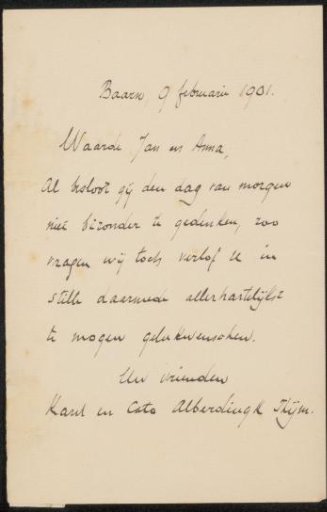 Baarn, 9 februarie 1901.
Waarde Jan en Anna,
Al besloot gij den dag van morgen
niet bizonder te gedenken, zoo
vragen wij toch verlof U in
stilte daarmede allerhartelijkst
te mogen gelukwenschen.
Uw vrienden
Karel en Cato Alberdingk Thijm.